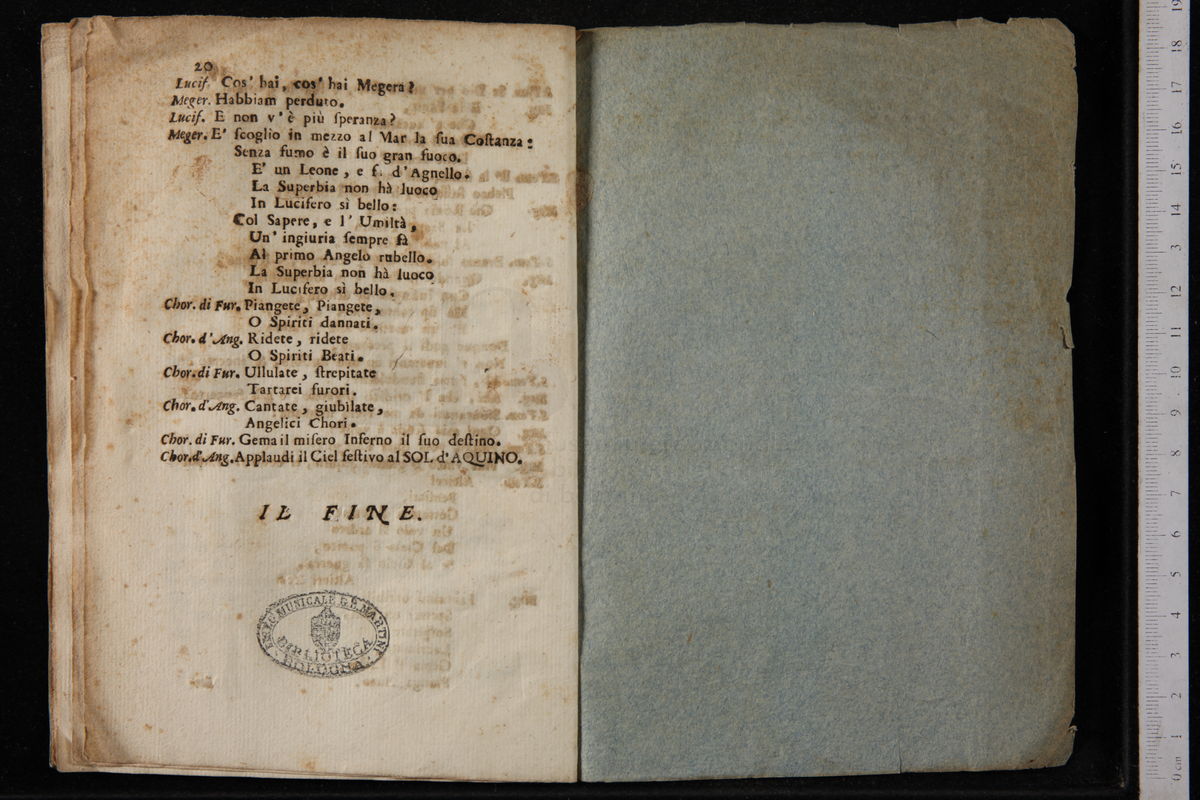 20
Lucif. Cos' hai, cos' hai Megera?
Meger. Habbiam perduto.
Lucif. E non v'è più ſperanza?
Meger. E' ſcoglio in mezzo al Mar la ſua Coſtanza:
Senza fumo è il ſuo gran fuoco.
E' un Leone, e ſ. d'Agnello.
La Superbia non hà luoco
In Lucifero sì bello:
Col Sapere, e l' Umiltà,
Un' ingiuria ſempre fà
Al primo Angelo rubello.
La Superbia non hà luoco
In Lucifero sì bello.
Chor. di Fur. Piangete, Piangete,
O Spiriti dannati.
Chor. d'Ang. Ridete, ridete
O Spiriti Beati.
Chor. di Fur. Ullulate, ſtrepitate
Tartarei furori.
Chor. d'Ang. Cantate, giubilate,
Angelici Chori.
Chor. di Fur. Gema il miſero Inferno il ſuo deſtino.
Chor. d'Ang. Applaudi il Ciel feſtivo al SOL d'AQUINO.
IL FINE.
MUSICALE G.B. MARTINI
BIBLIOTECA
BOLOGNA
0 cm 1 2 3 4 5 6 7 8 9 10 11 12 13 14 15 16 17 18 19